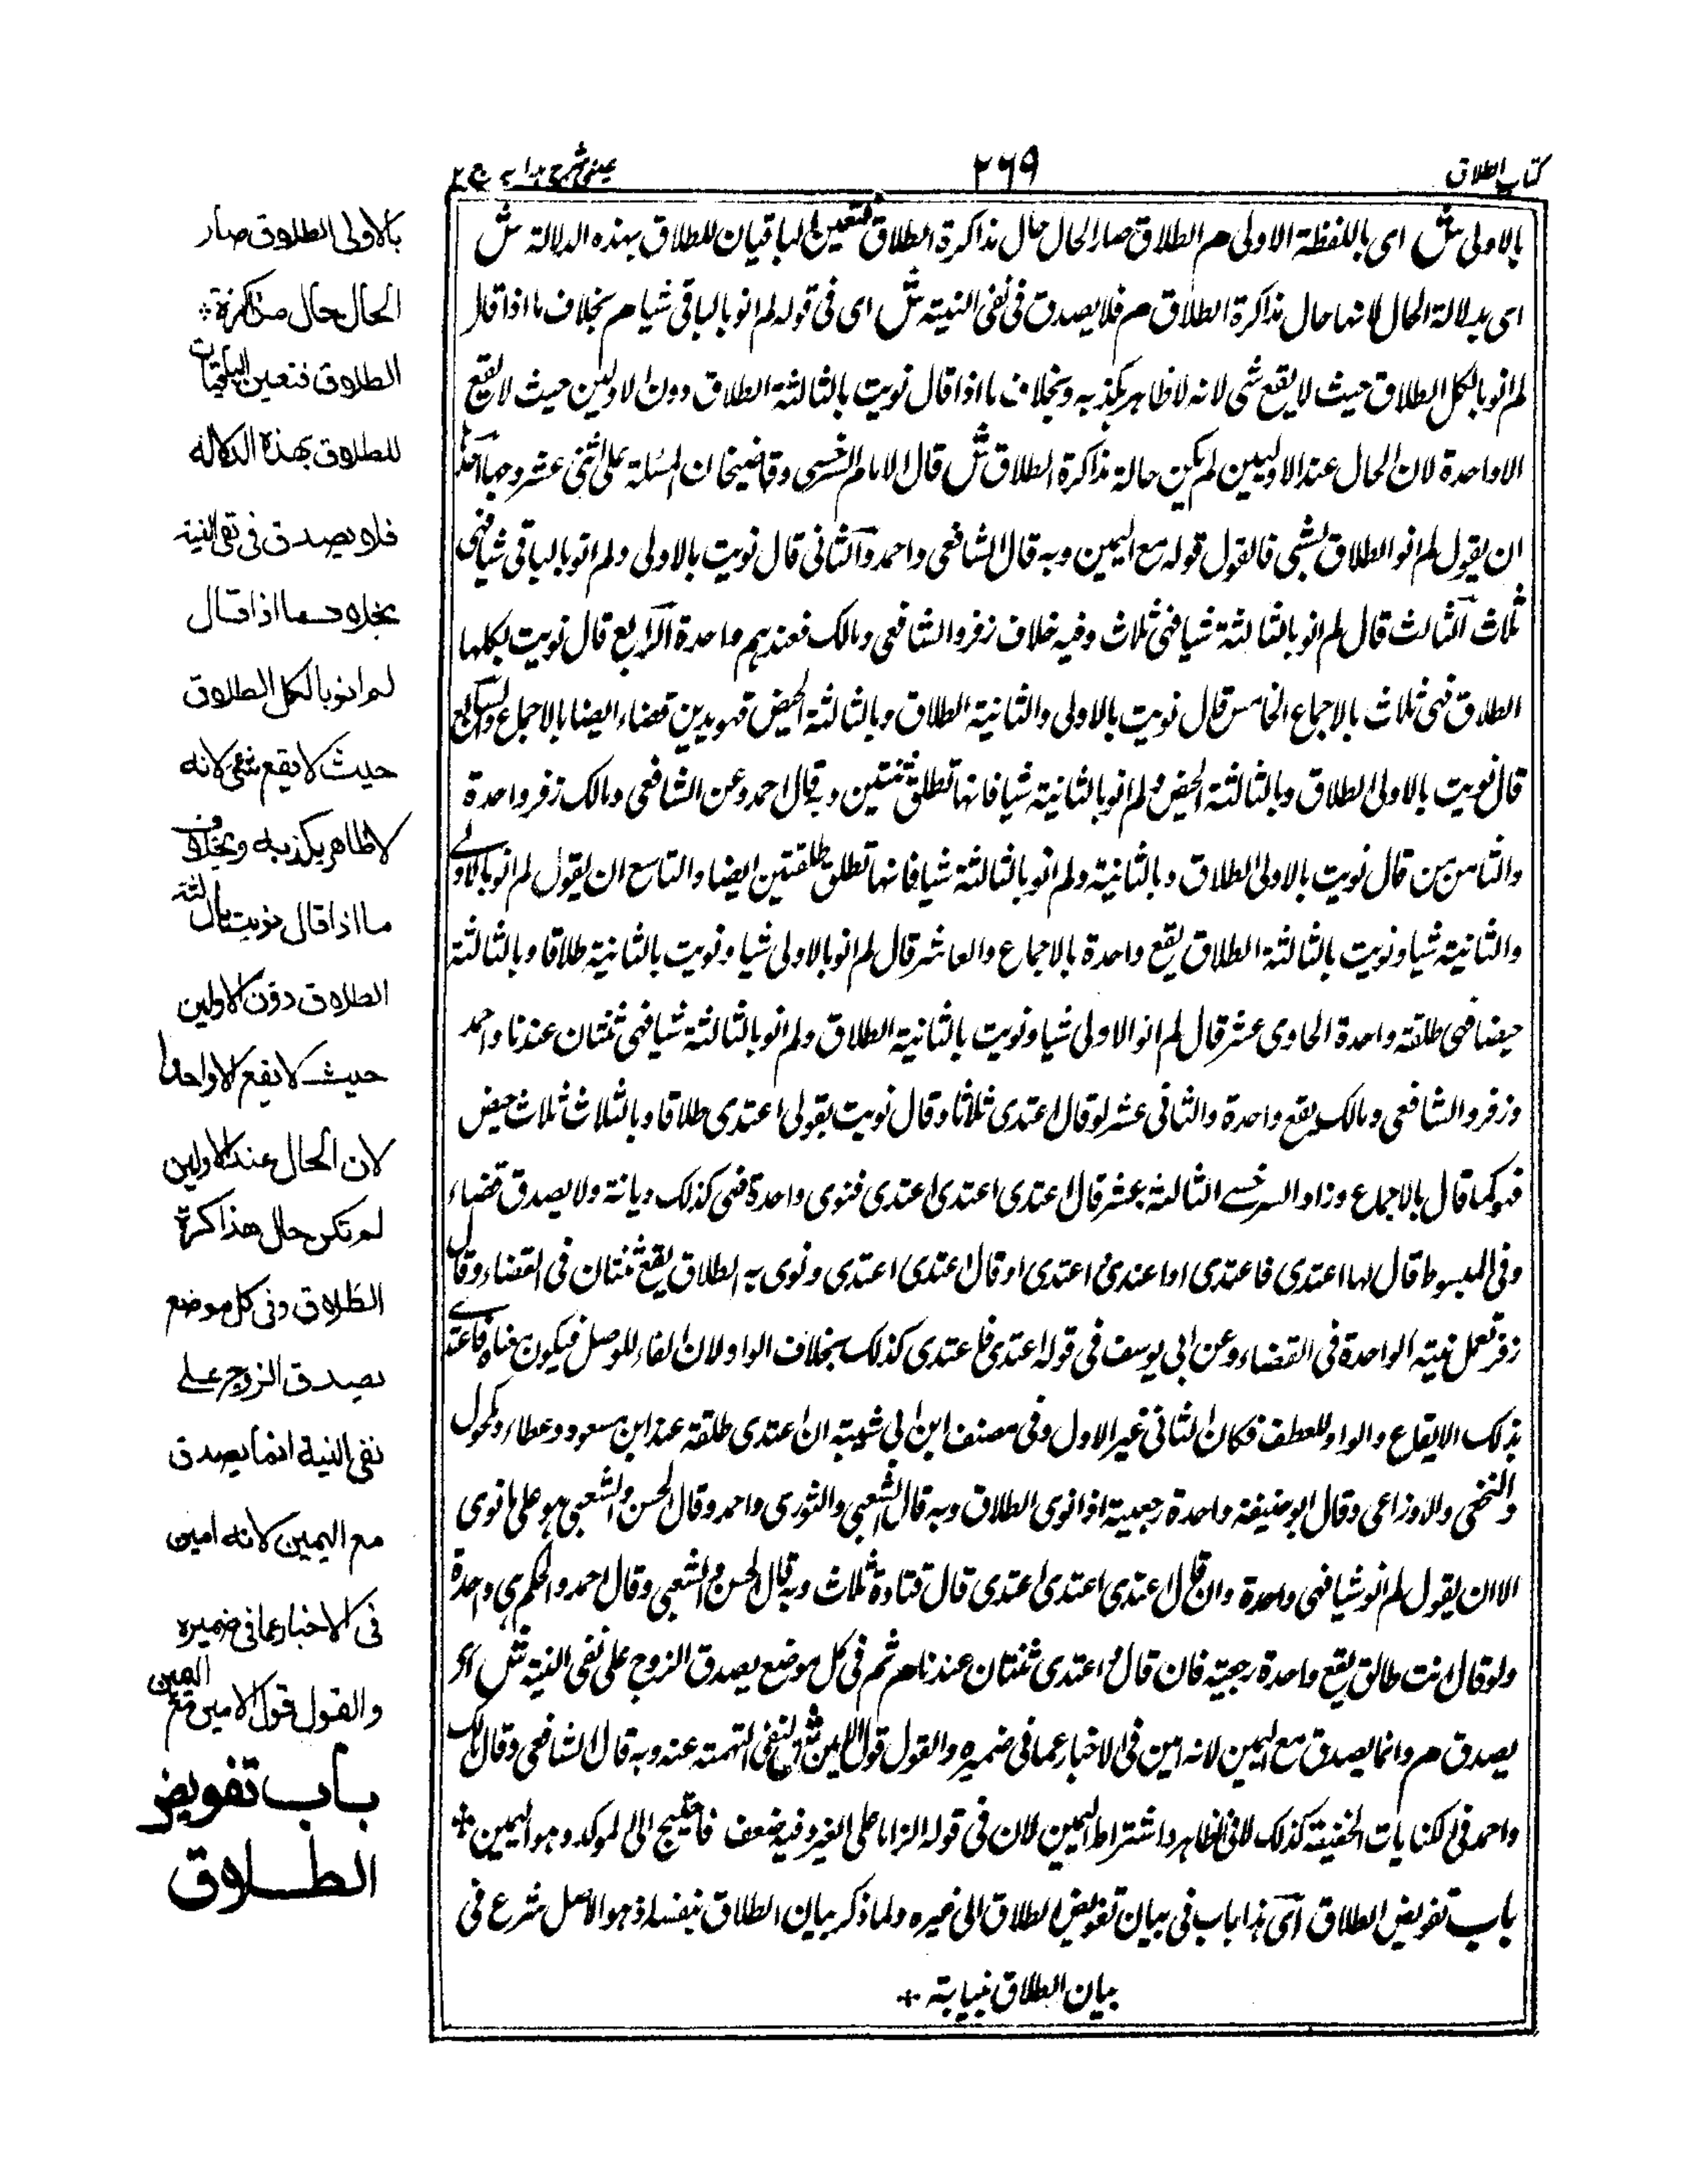 كتاب الطلاق
٢٦٩
عينى شرح هدايه ج ٢
بالاولى ش اى باللفظة الاولى م الطلاق صار الحال حال مذاكرة الطلاق فتعين الباقيان للطلاق بهذه الدلالة ش
اى بدلالة الحال لانها حال مذاكرة الطلاق م فلا يصدق فى نفى النية ش اى فى قوله لم انو بالباقى شيا م بخلاف ما اذا قال
لم انو بالكل الطلاق حيث لا يقع شى لانه لا ظاهر يكذبه وبخلاف ما اذا قال نويت بالثالثة الطلاق دون الاوليين حيث لا يقع
الا واحدة لان الحال عند الاوليين لم يكن حالة مذاكرة الطلاق ش قال الامام السرخسى وقاضيخان المسئلة على اثنى عشر وجها احدها
ان يقول لم انو الطلاق بشى فالقول قوله مع اليمين وبه قال الشافعى واحمد والثانى قال نويت بالاولى ولم انو بالباقى شيا فهى
ثلاث الثالث قال لم انو بالثالثة شيا فهى ثلاث وفيه خلاف زفر والشافعى ومالك فعندهم واحدة الرابع قال نويت بكلها
الطلاق فهى ثلاث بالاجماع الخامس قال نويت بالاولى والثانية الطلاق وبالثالثة الحيض فهو يدين قضاء ايضا بالاجماع والسابع
قال نويت بالاولى الطلاق وبالثالثة الحيض ولم انو بالثانية شيا فانها تطلق ثنتين وبه قال احمد وعن الشافعى ومالك زفر واحدة
والثامن من قال نويت بالاولى الطلاق وبالثانية ولم انو بالثالثة شيا فانها تطلق طلقتين ايضا والتاسع ان يقول لم انو بالاولى
والثانية شيا ونويت بالثالثة الطلاق يقع واحدة بالاجماع والعاشر قال لم انو بالاولى شيا ونويت بالثانية طلاقا وبالثالثة
حيضا فهى طلقة واحدة الحادى عشر قال لم انو الاولى شيا ونويت بالثانية الطلاق ولم انو بالثالثة شيا فهى ثنتان عندنا واحمد
وزفر والشافعى ومالك يقع واحدة والثانى عشر لو قال اعتدى ثلاثا وقال نويت بقولى اعتدى طلاقا وبالثلاث ثلاث حيض
فهو كما قال بالاجماع وزاد السرخسى الثالثة عشر قال اعتدى اعتدى اعتدى فنوى واحدة فهى كذلك ديانة ولا يصدق قضاء
وفى المبسوط قال لها اعتدى فاعتدى او اعتدى واعتدى او قال اعتدى اعتدى ونوى به الطلاق يقع ثنتان فى القضاء وقال
زفر تعمل نية الواحدة فى القضاء وعن ابى يوسف فى قوله اعتدى فاعتدى كذلك بخلاف الواو لان الفاء للوصل فيكون معناه فاعتدى
بذلك الايقاع والواو للعطف فكان الثانى غير الاول وفى مصنف ابن ابى شيبة ان اعتدى طلقة عند ابن مسعود وعطاء ومكحول
والنخعى والاوزاعى وقال ابو حنيفة واحدة رجعية اذا نوى الطلاق وبه قال الشعبى والثورى واحمد وقال الحسن والشعبى هو على ما نوى
الا ان يقول لم انو شيا فهى واحدة وان قال اعتدى اعتدى اعتدى قال قتادة ثلاث وبه قال الحسن والشعبى وقال احمد والحكم هى واحدة
ولو قال انت طالق يقع واحدة رجعية فان قال واعتدى ثنتان عندنا م ثم فى كل موضع يصدق الزوج على نفى النية ش اى
يصدق م وانما يصدق مع اليمين لانه امين فى الاخبار عما فى ضميره والقول قول الامين ش لنفى التهمة عنه وبه قال الشافعى وقال مالك
واحمد فى الكنايات الخفية كذلك لان الظاهر واشتراط اليمين لان فى قوله الزاما على الغير وفيه ضعف فاحتيج الى الموكد وهو اليمين
باب تفويض الطلاق اى هذا باب فى بيان تفويض الطلاق الى غيره ولما ذكر بيان الطلاق بنفسه اذ هو الاصل شرع فى
بيان الطلاق نيابة
بالاولى الطلاق صار
الحال حال مذاكرة
الطلاق فتعين الباقيان
للطلاق بهذه الدلاله
فلا يصدق فى نفى النية
بخلاف ما اذا قال
لم انو بالكل الطلاق
حيث لا يقع شئ لانه
لا ظاهر يكذبه وبخلاف
ما اذا قال نويت بالثالثة
الطلاق دون الاولين
حيث لا يقع الا واحدة
لان الحال عند الاولين
لم تكن حال مذاكرة
الطلاق وفى كل موضع
يصدق الزوج على
نفى النية انما يصدق
مع اليمين لانه امين
فى الاخبار عما فى ضميره
والقول قول الامين مع اليمين
باب تفويض
الطلاق